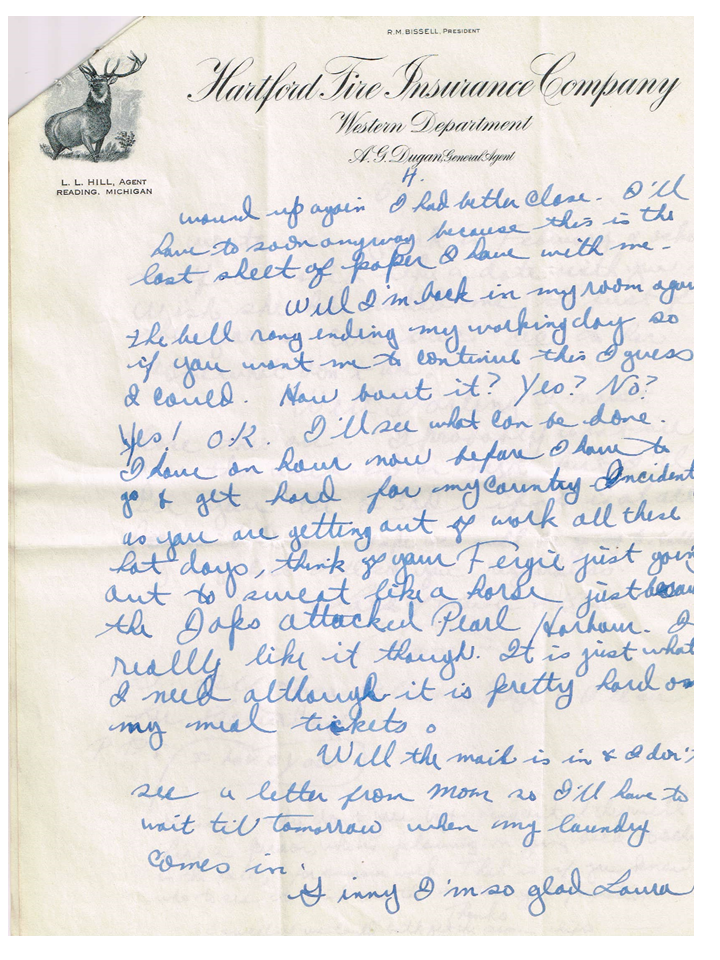 R.M. BISSELL, PRESIDENT
Hartford Fire Insurance Company
Western Department
A. G. Dugan, General Agent
L. L. HILL, AGENT
READING, MICHIGAN
4.
wound up again I had better close. I'll
have to soon anyway because this is the
last sheet of paper I have with me.
Well I'm back in my room again
the bell rang ending my working day so
if you want me to continue this I guess
I could. How bout it? Yes? No?
Yes! O.K. I'll see what can be done.
I have an hour now before I have to
go & get hard for my country Incident
as you are getting out of work all these
hot days, think of your Fergie just goin
out to sweat like a horse just becau
the Japs attacked Pearl Harbour. I
really like it though. It is just what
I need although it is pretty hard on
my meal tickets.
Well the mail is in & I don't
see a letter from Mom so I'll have to
wait til' tomorrow when my laundry
comes in.
Ginny I'm so glad Laura